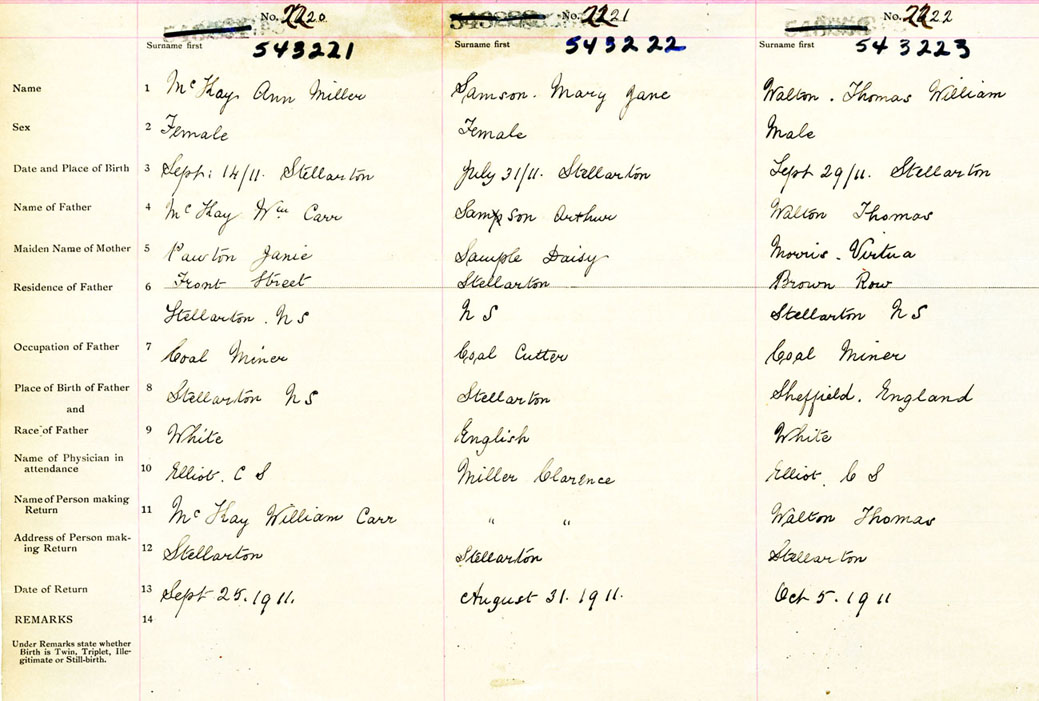 No. 2220 No. 2221 No. 2222
Surname first 543221 Surname first 543222 Surname first 543223
Name 1 McKay Ann Miller Samson. Mary Jane Walton. Thomas William
Sex 2 Female Female Male
Date and Place of Birth 3 Sept: 14/11. Stellarton July 31/11. Stellarton Sept 29/11. Stellarton
Name of Father 4 McKay Wm Carr Sampson Arthur Walton Thomas
Maiden Name of Mother 5 Janie Sample Daisy Morris. Virtua
Residence of Father 6 Front Street Stellarton Brown Row
Stellarton. N S N S Stellarton N S
Occupation of Father 7 Coal Miner Coal Cutter Coal Miner
Place of Birth of Father 8 Stellarton N S Stellarton Sheffield. England
and
Race of Father 9 White English White
Name of Physician in
attendance 10 Elliot. C S Miller Clarence Elliot. C S
Name of Person making
Return 11 McKay William Carr " " Walton Thomas
Address of Person mak-
ing Return 12 Stellarton Stellarton Stellarton
Date of Return 13 Sept 25. 1911. August 31. 1911. Oct 5. 1911
REMARKS 14
Under Remarks state whether
Birth is Twin, Triplet, Ille-
gitimate or Still-birth.